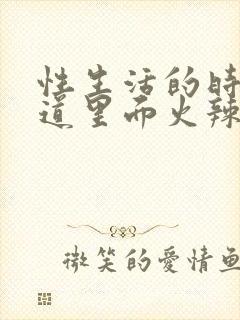 性生活的時
道里而火辣
微笑的愛情魚